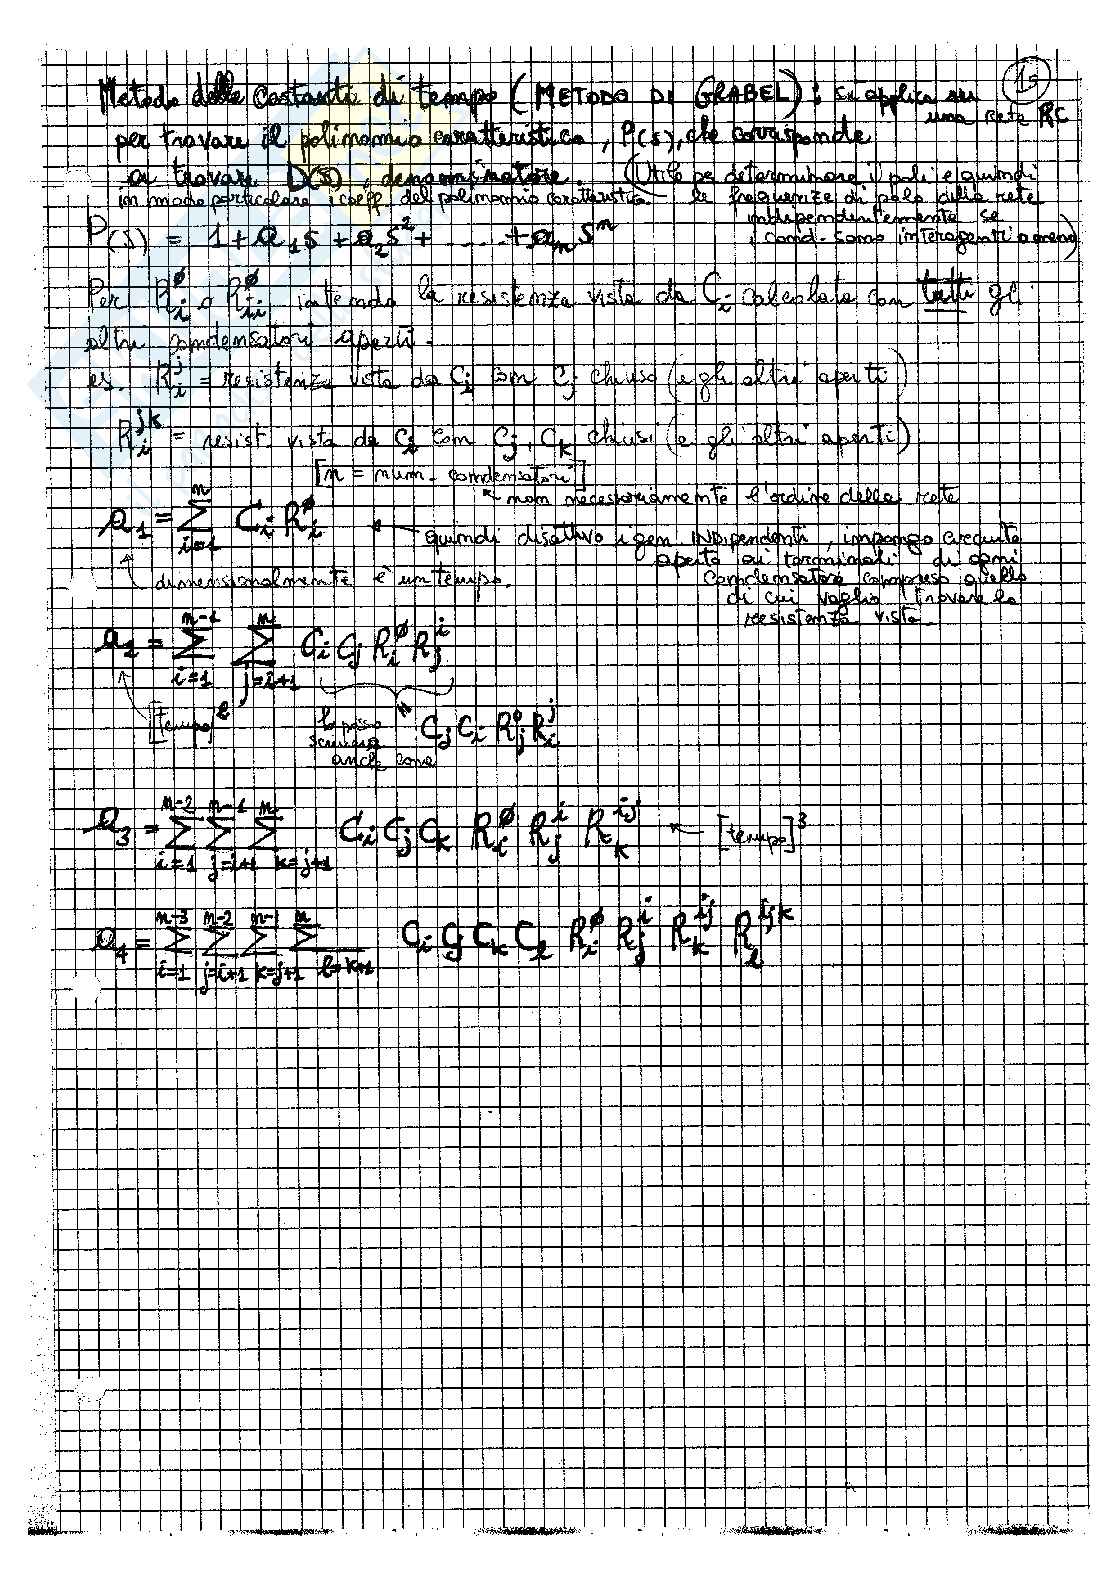 15
Metodo delle Costanti di tempo (METODO DI GRABEL): si applica su una rete RC
per trovare il polinomio caratteristico, P(s), che corrisponde
a trovare D(s), denominatore. (Utile per determinare i poli e quindi
in modo particolare i coeff. del polinomio caratteristico. le frequenze di polo della rete
indipendentemente se
P(s) = 1 + a₁s + a₂s² + ..... + aₙsⁿ i cond. sono interagenti o meno)
Per Rᵢ^ø o Rᵢᵢ^ø intendo la resistenza vista da Cᵢ calcolata con tutti gli
altri condensatori aperti.
es. Rᵢ^j = resistenza vista da Cᵢ con Cⱼ chiuso (e gli altri aperti)
Rᵢ^jk = resist. vista da Cᵢ con Cⱼ, Cₖ chiusi (e gli altri aperti)
[n = num. condensatori]
non necessariamente l'ordine della rete
a₁ = Σ_{i=1}^{n} Cᵢ Rᵢ^ø
quindi disattivo i gen. INDIPENDENTI, impongo circuito
aperto ai terminali di ogni
dimensionalmente è un tempo. condensatore compreso quello
di cui voglio trovare la
resistenza vista
a₂ = Σ_{i=1}^{n-1} Σ_{j=i+1}^{n} Cᵢ Cⱼ Rᵢ^ø Rⱼ^i
[tempo]² lo posso scrivere anche come Cⱼ Cᵢ Rⱼ^ø Rᵢ^j
a₃ = Σ_{i=1}^{n-2} Σ_{j=i+1}^{n-1} Σ_{k=j+1}^{n} Cᵢ Cⱼ Cₖ Rᵢ^ø Rⱼ^i Rₖ^ij ← [tempo]³
a₄ = Σ_{i=1}^{n-3} Σ_{j=i+1}^{n-2} Σ_{k=j+1}^{n-1} Σ_{l=k+1}^{n} Cᵢ Cⱼ Cₖ Cₗ Rᵢ^ø Rⱼ^i Rₖ^ij Rₗ^ijk